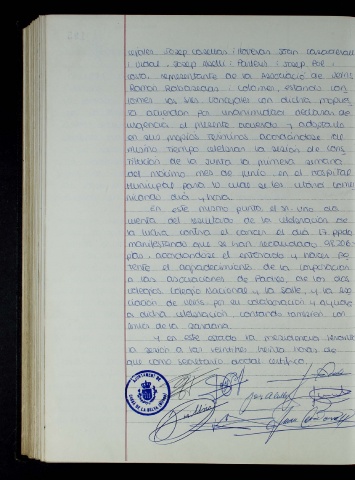 señores Josep Casellas i Noveras Joan Casadevall
i Vidal, Josep Abelli i Pallarès i Josep Pol i
representante de la Asociació de Veïns,
Ramon Rabaseda i Colomer, estando con
formes los tres concejales con dicha mo
la aprueban por unanimidad declaran de
urgencia el presente acuerdo y adoptarlo
en sus mismos términos acordándose al
mismo tiempo celebrar la sesión de cons
titución de la Junta la primera semana
del próximo mes de junio, en el hospital
Municipal para lo cual se les citará comu
nicando día y hora.
En este mismo punto el Sr.
cuenta del resultado de la celebración de
la lucha contra el cancer el día 17 ppdo
manifestando que se han recaudado
ptas, acordándose el enterado y hacer pa
tente el agradecimiento de la corporación
a las asociaciones de Padres, de los dos
colegios, Colegio Nacional y la Salle, y la aso
ciación de veins por su colaboración y ayuda
a dicha celebración contando también con
de la
Y en este estado la presidencia levanta
la sesión a las veintitres treinta horas de
que como secretario acctal certifico.
AJUNTAMENT DE
CASSÀ DE LA SELVA (Girona)